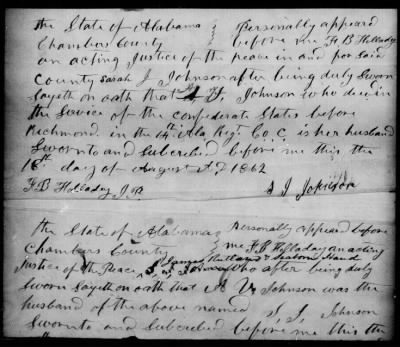 The State of Alabama } Personally appeared
Chambers County } before me F B Holladay
an acting Justice of the peace in and for said
County Sarah J Johnson after being duly Sworn
Sayeth on oath that Johnson who died in
the Service of the confederate States before
Richmond in the 14th Ala Regt Co C. is her husband
Sworn to and Subscribed before me this the
18th day of August 1862
F B Holladay J. P. S J Johnson
The State of Alabama } Personally appeared before
Chambers County } me F B Holladay an acting
Justice of the Peace, who after being duly
Sworn Sayeth on oath that Johnson was the
husband of the above named S. J. Johnson
Sworn to and Subscribed before me this the